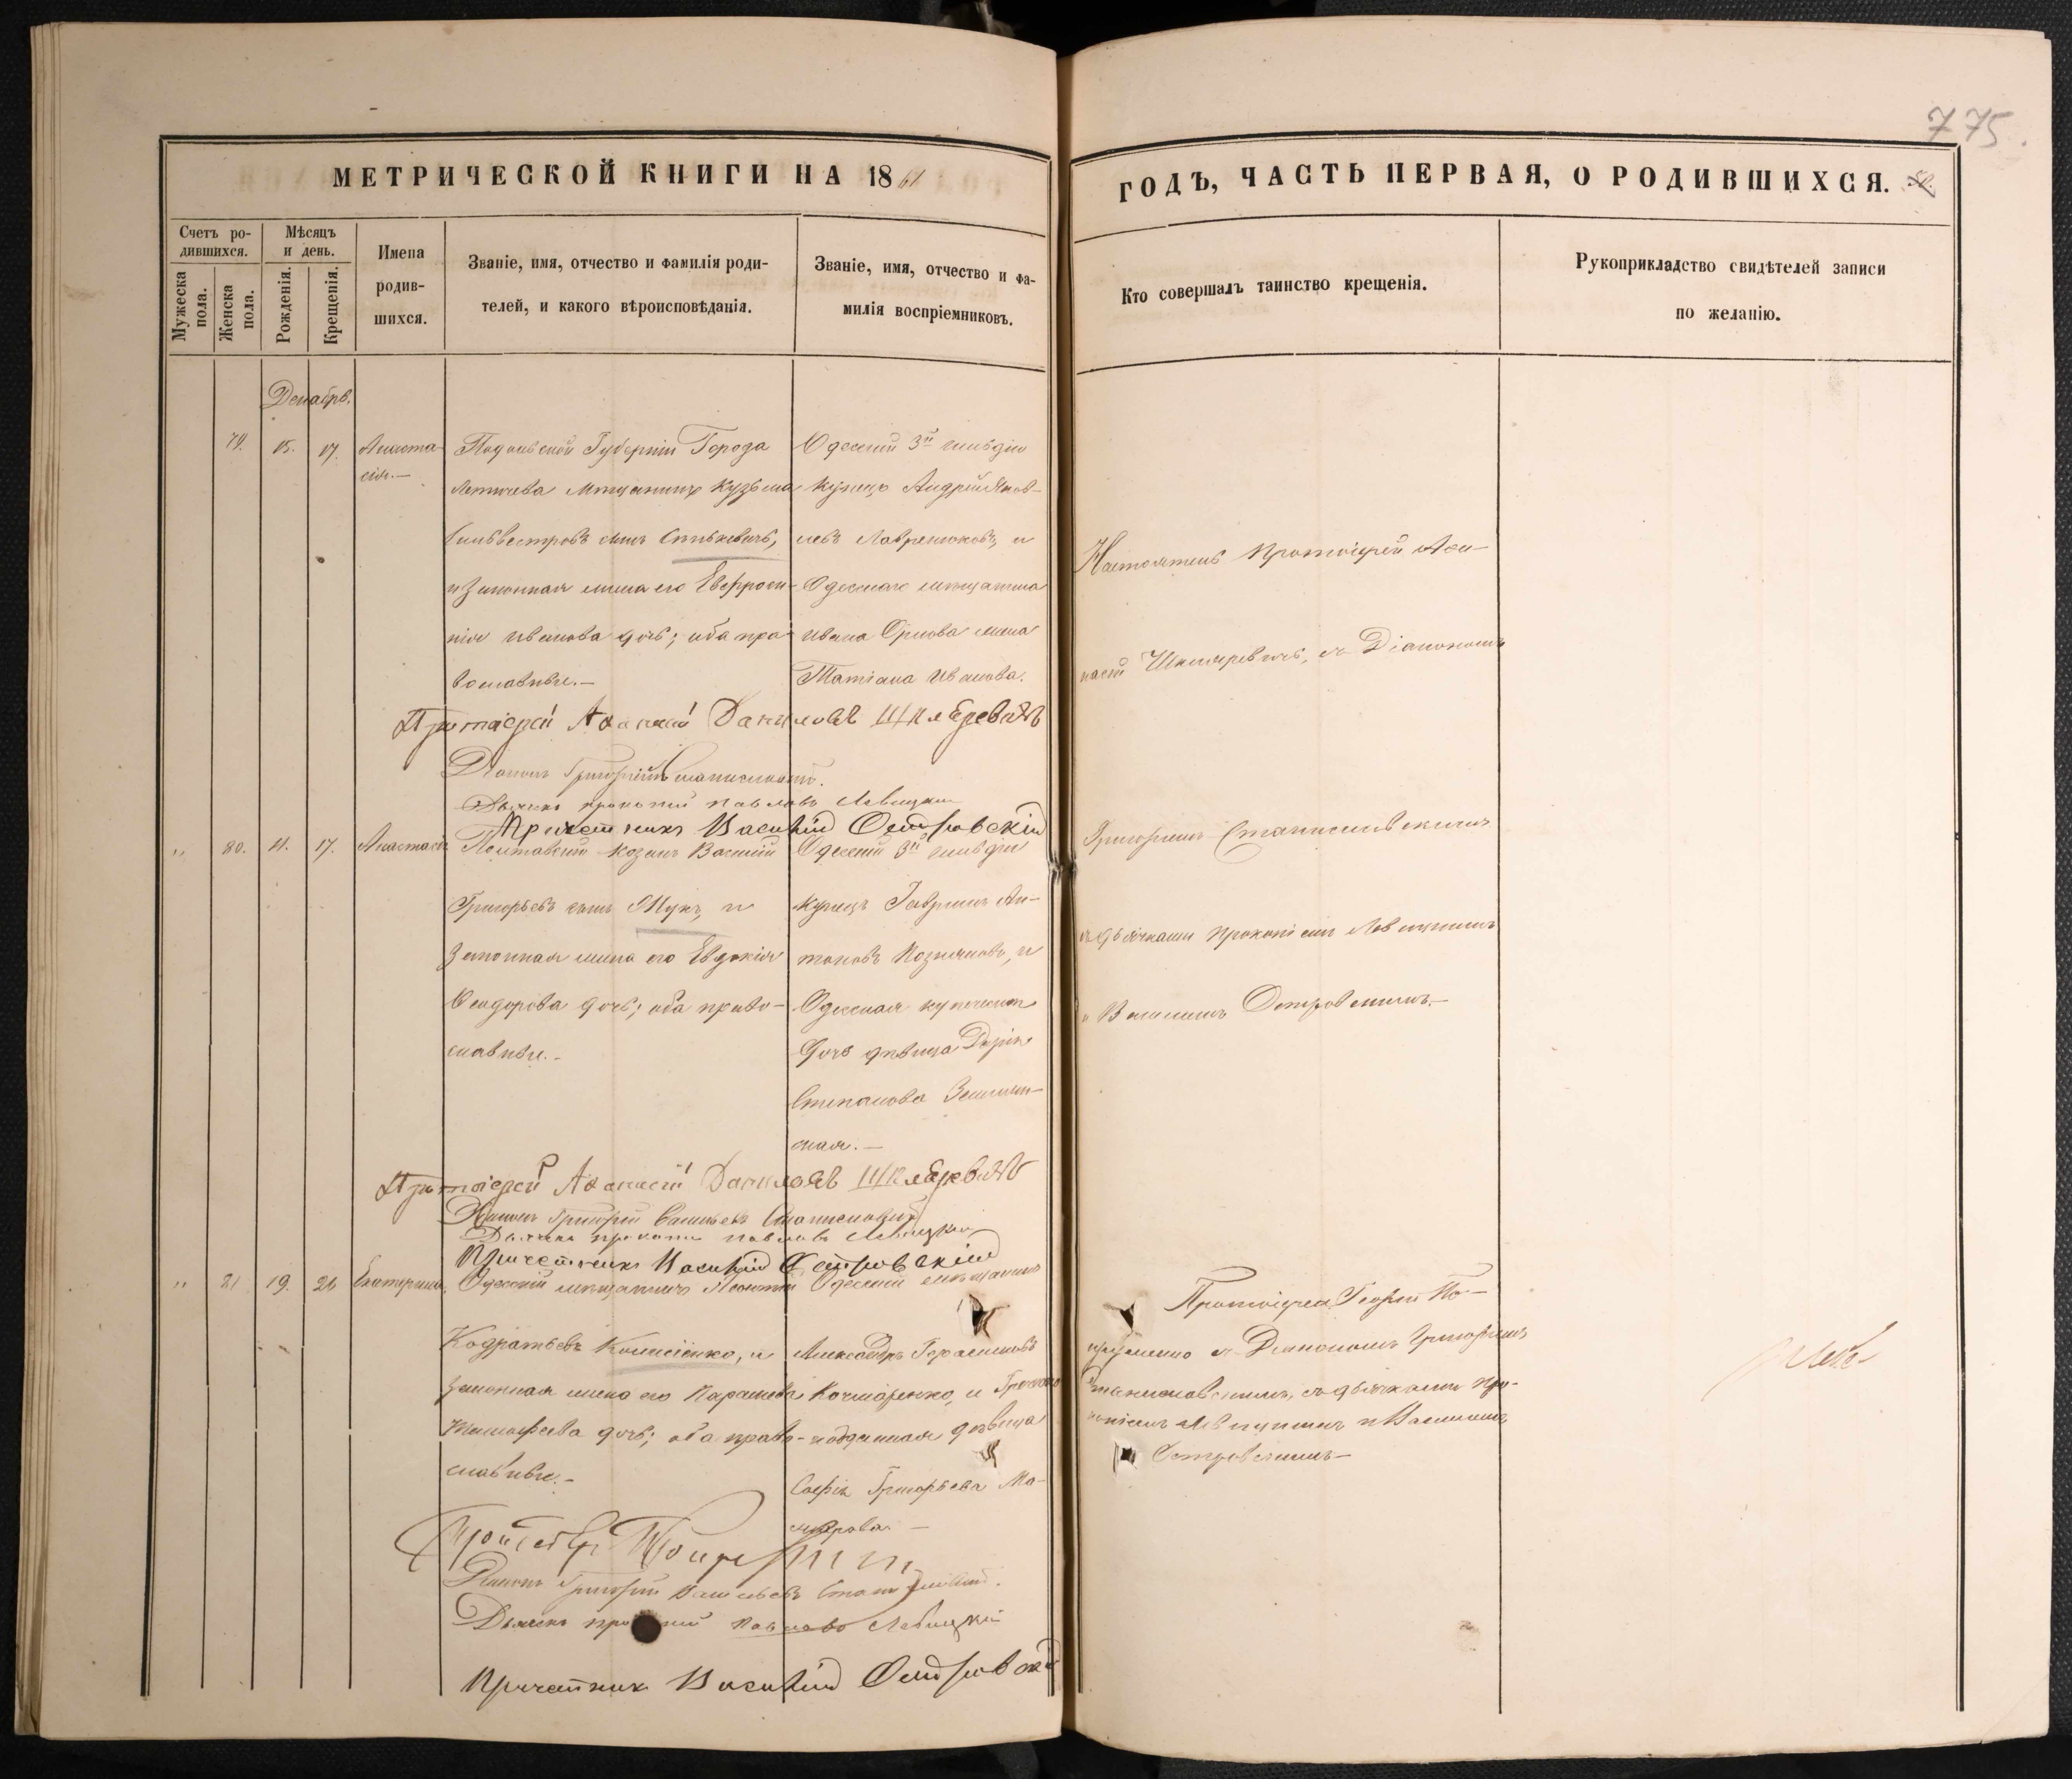 775.
МЕТРИЧЕСКОЙ КНИГИ НА 1861
ГОДЪ, ЧАСТЬ ПЕРВАЯ, О РОДИВШИХСЯ.
Счетъ ро-
дившихся.
Мужеска пола.
Женска пола.
Мѣсяцъ
и день.
Рожденія.
Крещенія.
Имена
родив-
шихся.
Званіе, имя, отчество и фамилія роди-
телей, и какого вѣроисповѣданія.
Званіе, имя, отчество и фа-
милія воспріемниковъ.
Кто совершалъ таинство крещенія.
Рукоприкладство свидѣтелей записи
по желанію.
Декабрь.
79. 15. 17. Анаста-
сія.—
Подольской Губерніи Города
Летичева Мѣщанинъ Кузьма
Сильвестровъ сынъ
и Законная жена его Евфроси-
нія Иванова дочь; оба пра-
вославные.—
Одесскій 3й гильдіи
Купецъ Андрей Яков-
левъ Лавренюковъ, и
Одесскаго мѣщанина
Ивана Орлова жена
Татіана Иванова.
Настоятель Протоіерей Аѳа-
насій Шкляревичъ, съ Діакономъ
Григоріемъ Станиславскимъ
и дьячками Прокопіемъ Левицкимъ
и Василіемъ Островскимъ.—
Протоіерей Аѳанасій Даниловъ Шкляревичъ
Діаконъ Григорій Станиславскій.
Дьячекъ Прокопій Павловъ Левицкій
Причетникъ Василій Островскій
" 80. 11. 17. Анастасія
Полтавскій Козакъ Василій
Григорьевъ сынъ Жукъ, и
Законная жена его Евдокія
Ѳеодорова дочь; оба право-
славные.-
Одесскій 3й гильдіи
купецъ Гавріилъ Ан-
тоновъ Позняковъ, и
Одесская купеческая
Дочь дѣвица Дарія
Степанова
ская.—
Протоіерей Аѳанасій Даниловъ Шкляревичъ
Діаконъ Григорій Васильевъ Станиславскій
Дьячекъ Прокопій Павловъ Левицкій
Причетникъ Василій Островскій
" 81 19. 26 Екатерина,
Одесскій мѣщанинъ Леонтій
Кодратьевъ Коліенко, и
законная жена его Параскева
Тимофеева дочь; оба право-
славные.-
Одесскій мѣщанинъ
Александръ Герасимовъ
Кочмаренко, и Греческо
подданная дѣвица
Софія Григорьева Ма-
Протоіерей Георгій По-
съ Діакономъ Григоріемъ
Станиславскимъ, съ дьячками Про-
копіемъ Левицкимъ и Василіемъ
Островскимъ—
Діаконъ Григорій Васильевъ Станиславскій.
Дьячекъ Прокопій Павловъ Левицкій
Причетникъ Василій Островскій